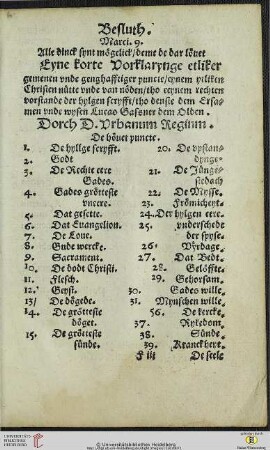 Besluth.
Marci. 9.
Alle dinck synt mögelick / deme de dar löuet
Eyne korte Vorklarynge etliker
gemenen vnde genghafftiger puncte / eynem ytliken
Christen nütte vnde van nöden / tho reynem rechten
vorstande der hylgen scryfft / tho denste dem Ersa-
men vnde wysen Lucas Gasner dem Olden.
Dorch D. Vrbanum Regium.
De höuet puncte.
1. De hyllge scryfft.
2. Godt
3. De Rechte ere
Gades.
4. Gades grötteste
vneere.
5. Dat gesette.
6. Dat Euangelion.
7. De Loue.
8. Gude wercke.
9. Sacrament.
10. De dodt Christi.
11. Flesch.
12. Geyst.
13/ De dögede.
14. De grötteste
döget.
15. De grötteste
sünde.
20. De vpstan-
dynge.
21. De Jünge-
stedach
22. De Mysse.
23. Frömicheyt.
24. Der hylgen eere.
25. vnderschede
der spyse.
26. Vyrdage.
27. Dat Bedt.
28. Gelöffte.
29. Gehorsam.
30. Gades wille.
31. Mynschen wille.
56. De kercke.
37. Rykedom.
38. Sünde.
39. Kranckheyt.
F iii
De seele
Universitätsbibliothek Heidelberg